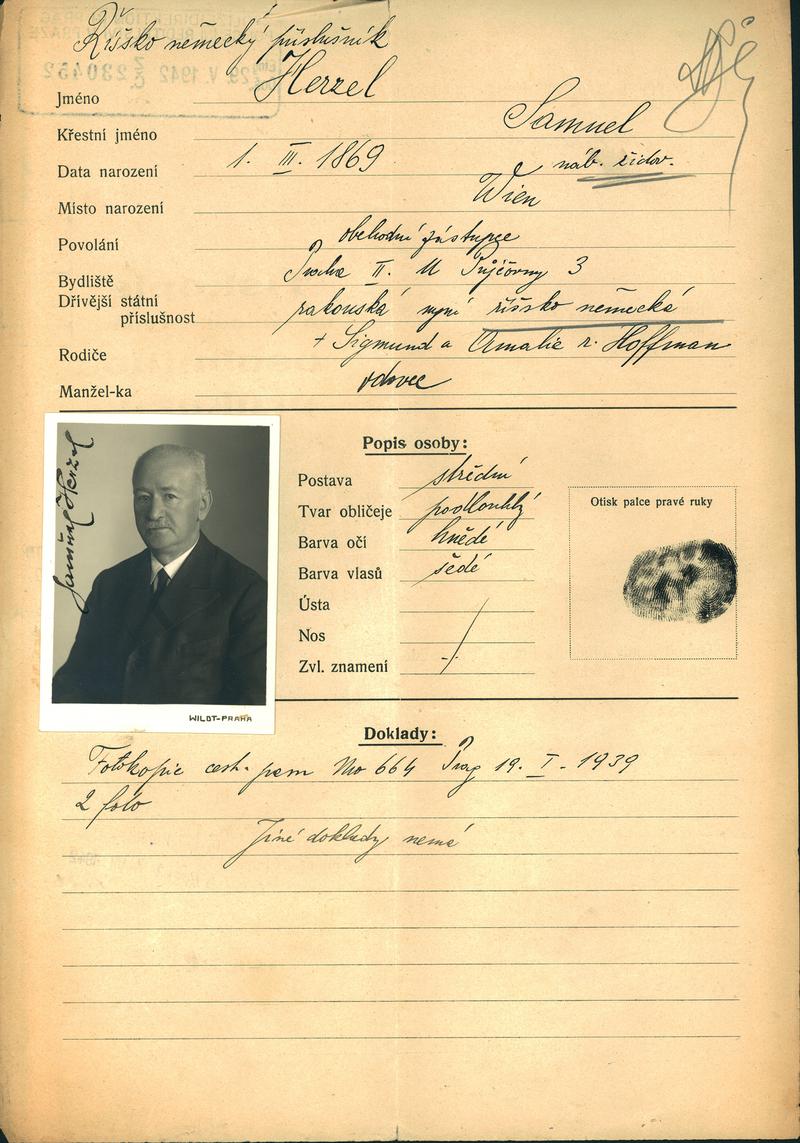 Říšsko německý příslušník
Jméno Herzel
Křestní jméno Samuel
Data narození 1. III. 1869 náb. židov.
Místo narození Wien
Povolání obchodní zástupce
Bydliště Praha II. U Půjčovny 3
Dřívější státní
příslušnost rakouská nyní říšsko německá
Rodiče + Sigmund a Amalie r. Hoffman
Manžel-ka vdovec
Samuel Herzel
WILDT-PRAHA
Popis osoby:
Postava střední
Tvar obličeje podlouhlý
Barva očí hnědé
Barva vlasů šedé
Ústa
Nos
Zvl. znamení
Otisk palce pravé ruky
Doklady:
Fotokopie cest. pasu No 664 Prag 19. I. 1939
2 foto
Jiné doklady nemá